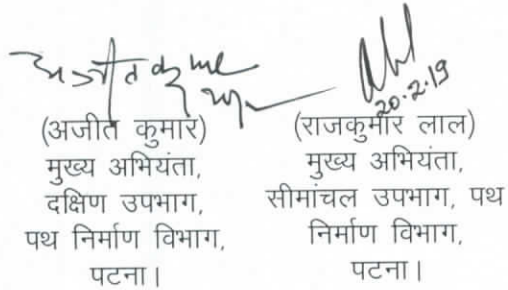 अजीत कुमार
20.2.19
(अजीत कुमार)
मुख्य अभियंता,
दक्षिण उपभाग,
पथ निर्माण विभाग,
पटना।
(राजकुमार लाल)
मुख्य अभियंता,
सीमांचल उपभाग, पथ
निर्माण विभाग,
पटना।